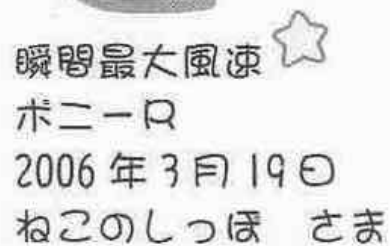 瞬間最大風速
ボニーR
2006年3月19日
ねこのしっぽ　さま